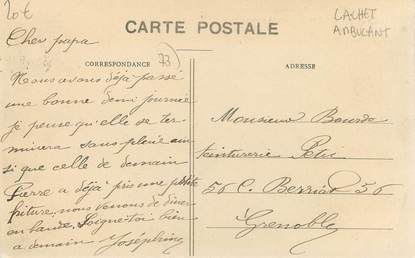 20€
CACHET
AMBULANT
CARTE POSTALE
Cher papa
73
CORRESPONDANCE
ADRESSE
Nous avons déja passé
une bonne demi journée
je pense qu'elle se ter-
minera sans pluie aus
si que celle de demain
Pierre a déja pris une petite
friture, nous venons de diner
en bande, Soigne-toi bien
a demain Joséphine
Monsieur
teinturerie
56 C. Berriat 56
Grenoble